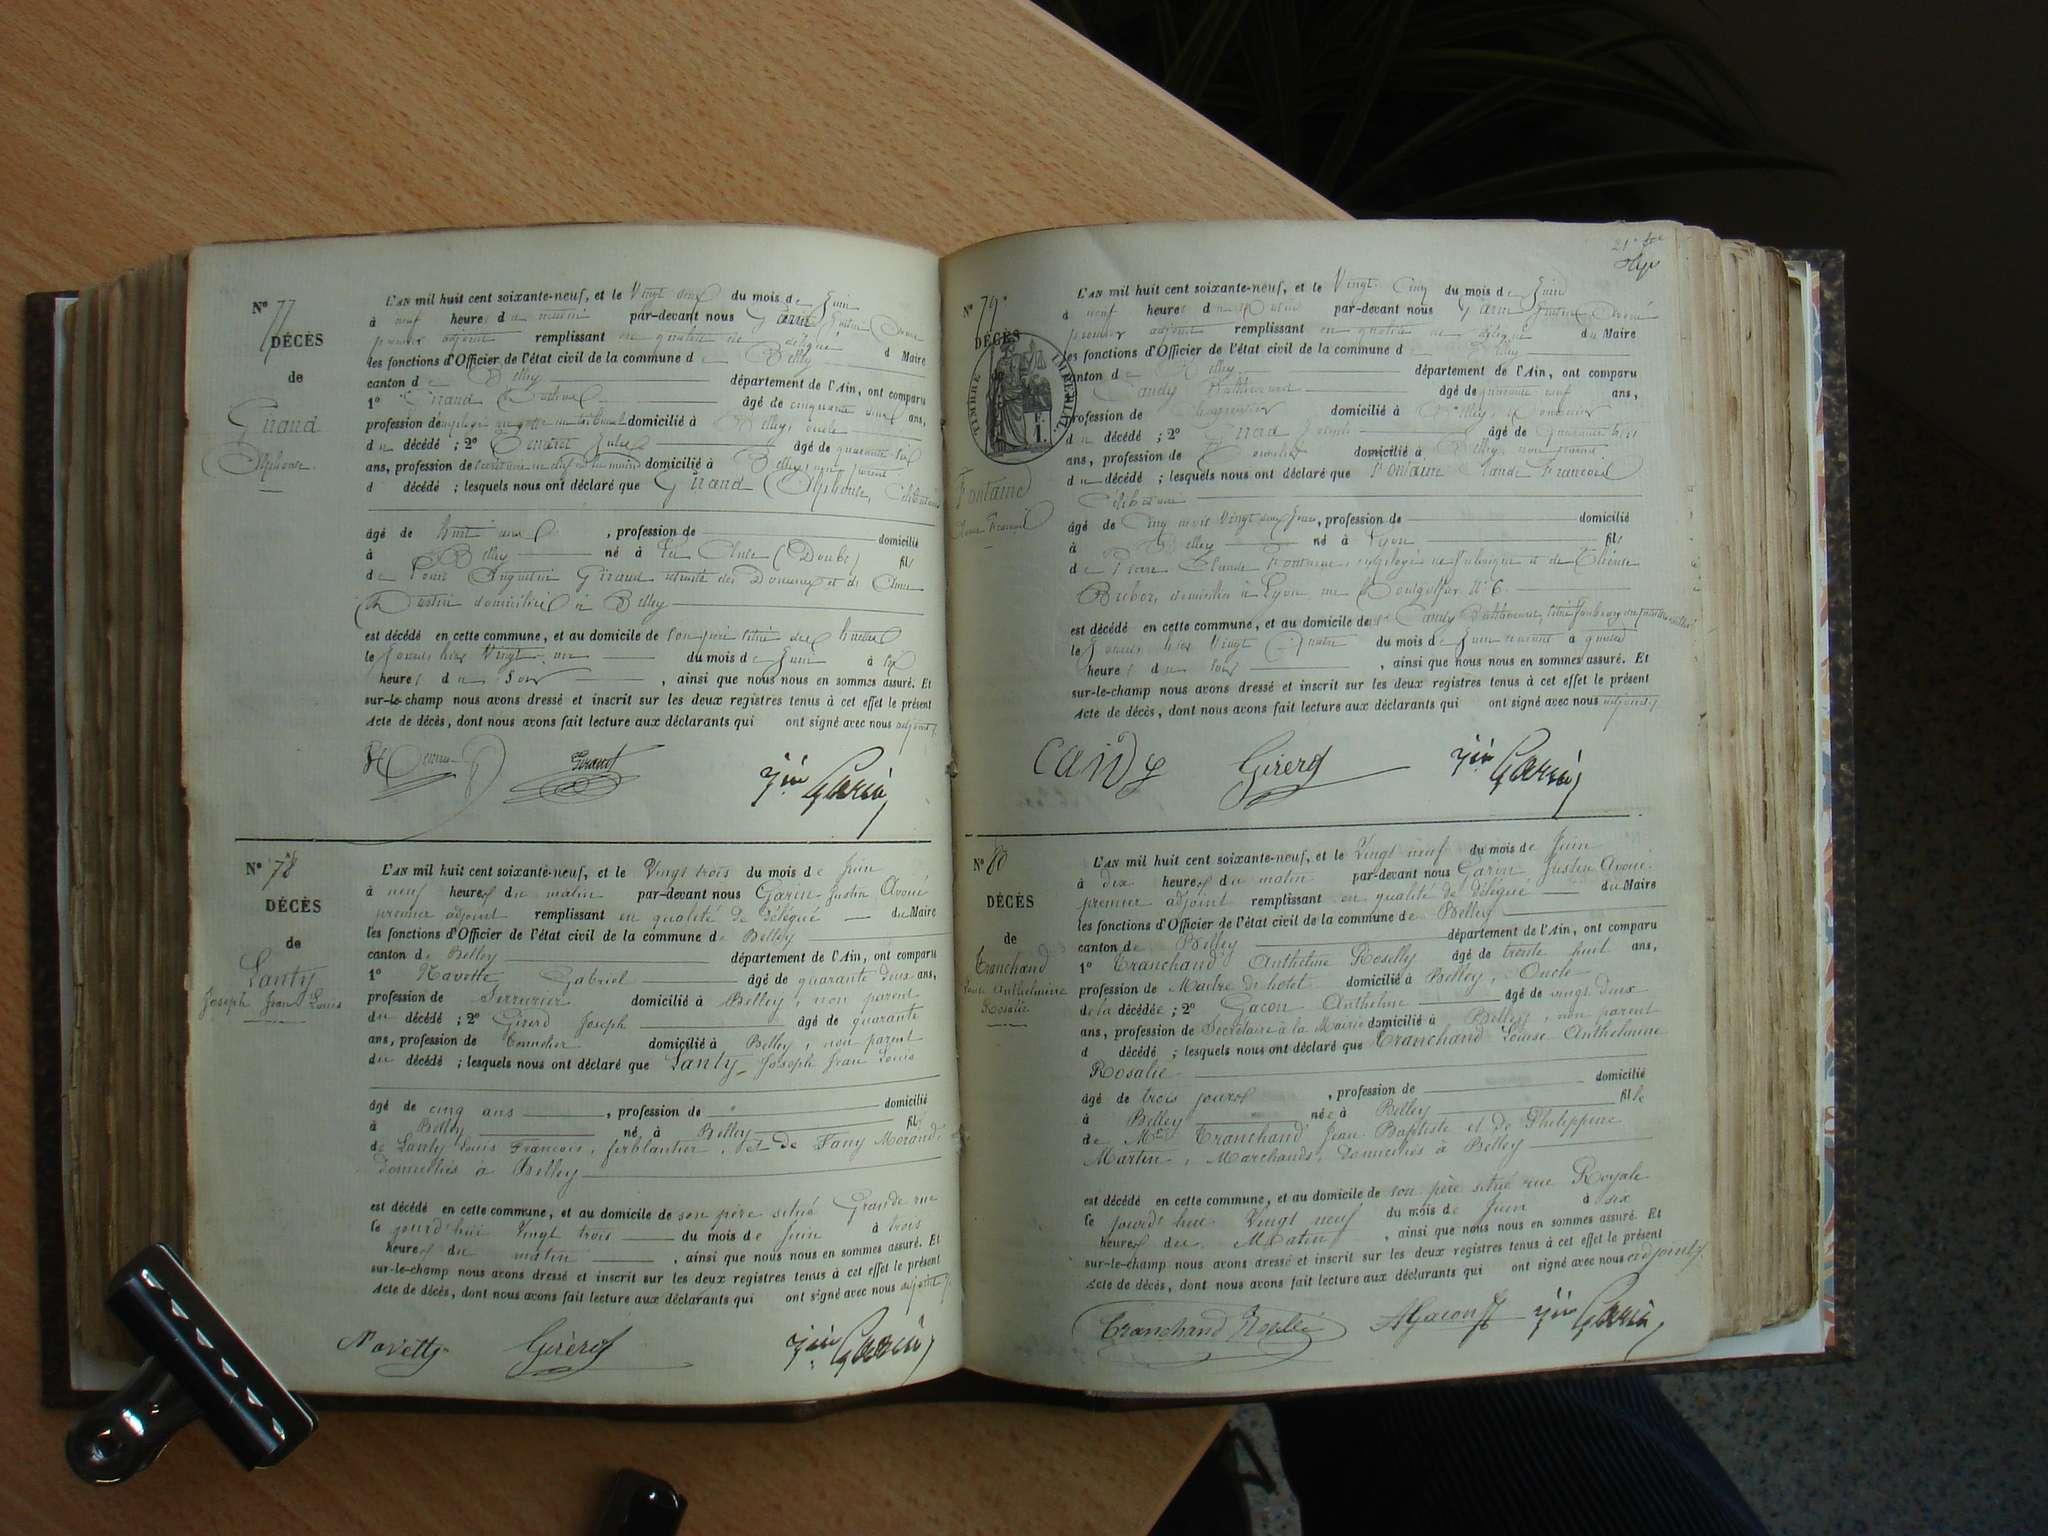 N° 77
DÉCÈS
de
Giraud
Alphonse
L'AN mil huit cent soixante-neuf, et le Vingt deux du mois de Juin
à neuf heures du matin par-devant nous Garin Justin Avoué
premier adjoint remplissant en qualité de délégué d Maire
les fonctions d'Officier de l'état civil de la commune de Belley
canton de Belley département de l'Ain, ont comparu
1° Giraud âgé de cinquante deux ans,
profession d domicilié à Belley, oncle
du décédé ; 2° Jules âgé de quarante six
ans, profession de domicilié à Belley, non parent
d décédé ; lesquels nous ont déclaré que Giraud Alphonse, Célibataire
âgé de huit ans , profession de domicilié
à Belley né à La Cluse (Doubs) fils
de Louis Augustin Giraud des Douanes et de
domiciliés à Belley
est décédé en cette commune, et au domicile de son père situé
le jourd'hier Vingt un du mois de Juin à six
heures du soir , ainsi que nous nous en sommes assuré. Et
sur-le-champ nous avons dressé et inscrit sur les deux registres tenus à cet effet le présent
Acte de décès, dont nous avons fait lecture aux déclarants qui ont signé avec nous adjoint
Giraud Jin Garin
N° 78
DÉCÈS
de
Lanty
Joseph Jean Louis
L'AN mil huit cent soixante-neuf, et le Vingt trois du mois de Juin
à neuf heures du matin par-devant nous Garin Justin Avoué
premier adjoint remplissant en qualité de délégué du Maire
les fonctions d'Officier de l'état civil de la commune de Belley
canton de Belley département de l'Ain, ont comparu
1° Navette Gabriel âgé de quarante deux ans,
profession de Serrurier domicilié à Belley, non parent
du décédé ; 2° Girerd Joseph âgé de quarante
ans, profession de Tonnelier domicilié à Belley, non parent
du décédé ; lesquels nous ont déclaré que Lanty Joseph Jean Louis
âgé de cinq ans , profession de domicilié
à Belley né à Belley fils
de Lanty Louis François, ferblantier, et de Fany Morand
domiciliés à Belley
est décédé en cette commune, et au domicile de son père situé Grande rue
le jourd'hui Vingt trois du mois de Juin à trois
heures du matin , ainsi que nous nous en sommes assuré. Et
sur-le-champ nous avons dressé et inscrit sur les deux registres tenus à cet effet le présent
Acte de décès, dont nous avons fait lecture aux déclarants qui ont signé avec nous adjoint
Navette Girerd Jin Garin
21e
N° 79
DÉCÈS
TIMBRE IMPERIAL
F.
1.
Fontaine
Claude François
L'AN mil huit cent soixante-neuf, et le Vingt Cinq du mois de Juin
à neuf heures du matin par-devant nous Garin Justin Avoué
premier adjoint remplissant en qualité de délégué du Maire
les fonctions d'Officier de l'état civil de la commune de Belley
canton de Belley département de l'Ain, ont comparu
Candy Balthazard âgé de quarante neuf ans,
profession de Charpentier domicilié à Belley,
du décédé ; 2° Girerd Joseph âgé de quarante
ans, profession de Tonnelier domicilié à Belley, non parent
du décédé ; lesquels nous ont déclaré que Fontaine Claude François
Célibataire
âgé de Cinq mois Vingt deux jours , profession de domicilié
à Belley né à Lyon fils
de Pierre Claude Fontaine, employé de fabrique et de
domiciliés à Lyon rue Montgolfier N° 6
est décédé en cette commune, et au domicile de Candy Balthazard,
le jourd'hier Vingt Quatre du mois de Juin courant à quatre
heures du soir , ainsi que nous nous en sommes assuré. Et
sur-le-champ nous avons dressé et inscrit sur les deux registres tenus à cet effet le présent
Acte de décès, dont nous avons fait lecture aux déclarants qui ont signé avec nous adjoint
Candy Girerd Jin Garin
N° 80
DÉCÈS
de
Tranchand
Louise Anthelmine
Rosalie
L'AN mil huit cent soixante-neuf, et le Vingt neuf du mois de Juin
à dix heures du matin par-devant nous Garin Justin Avoué
premier adjoint remplissant en qualité de délégué du Maire
les fonctions d'Officier de l'état civil de la commune de Belley
canton de Belley département de l'Ain, ont comparu
1° Tranchand Anthelme Roselly âgé de trente huit ans,
profession de Maître d'hôtel domicilié à Belley, Oncle
de la décédée ; 2° Gacon Anthelme âgé de vingt deux
ans, profession de Secrétaire à la Mairie domicilié à Belley, non parent
d décédé ; lesquels nous ont déclaré que Tranchand Louise Anthelmine
Rosalie
âgé de trois jours , profession de domicilié
à Belley née à Belley fille
de Me Tranchand Jean Baptiste et de Philippine
Martin, Marchands, domiciliés à Belley
est décédé en cette commune, et au domicile de son père situé rue Royale
le jourd'hui Vingt neuf du mois de Juin à six
heures du Matin , ainsi que nous nous en sommes assuré. Et
sur-le-champ nous avons dressé et inscrit sur les deux registres tenus à cet effet le présent
Acte de décès, dont nous avons fait lecture aux déclarants qui ont signé avec nous adjoint
Tranchand AGacon Jin Garin